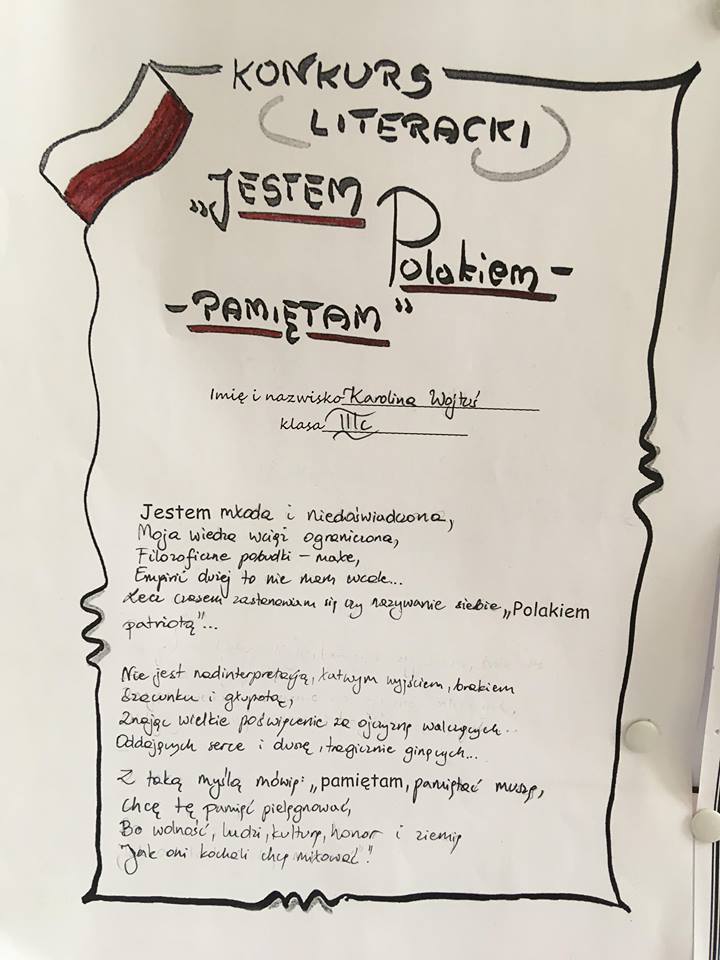 KONKURS
LITERACKI
„JESTEM
Polakiem -
- PAMIĘTAM"
Imię i nazwisko Karolina Wojtuś
klasa IIIc
Jestem młoda i niedoświadczona,
Moja wiedza wciąż ograniczona,
Filozoficzne pobudki – małe,
Empirii dużej to nie mam wcale...
Lecz czasem zastanawiam się czy nazywanie siebie „Polakiem
patriotą"...
Nie jest nadinterpretacją, łatwym wyjściem, brakiem
szacunku i głupotą,
Znając wielkie poświęcenie za ojczyznę walczących...
Oddających serce i duszę, tragicznie ginących...
Z taką myślą mówię: „pamiętam, pamiętać muszę,
Chcę tę pamięć pielęgnować,
Bo wolność, ludzi, kulturę, honor i ziemię
Jak oni kochali chcę miłować".